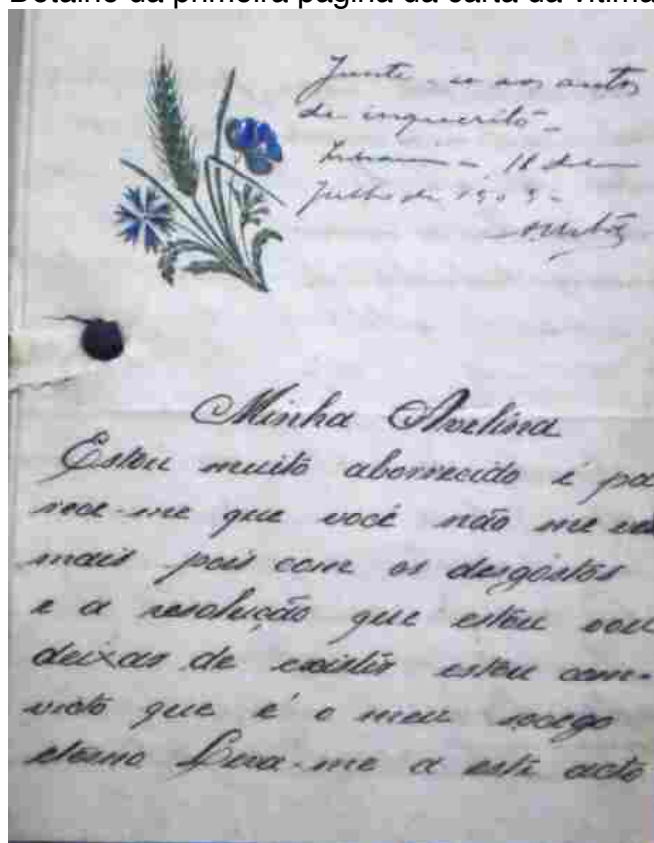 Detalhe da primeira página da carta da vítima
Junte-se aos autos
de inquerito-
18 de
Julho de 190
Minha Avelina
Estou muito aborrecido e pa
rece-me que você não me ve
mais pois com os desgostos
e a resolução que estou vou
deixar de existir estou com-
victo que é o meu socego
eterno Leva-me a este acto